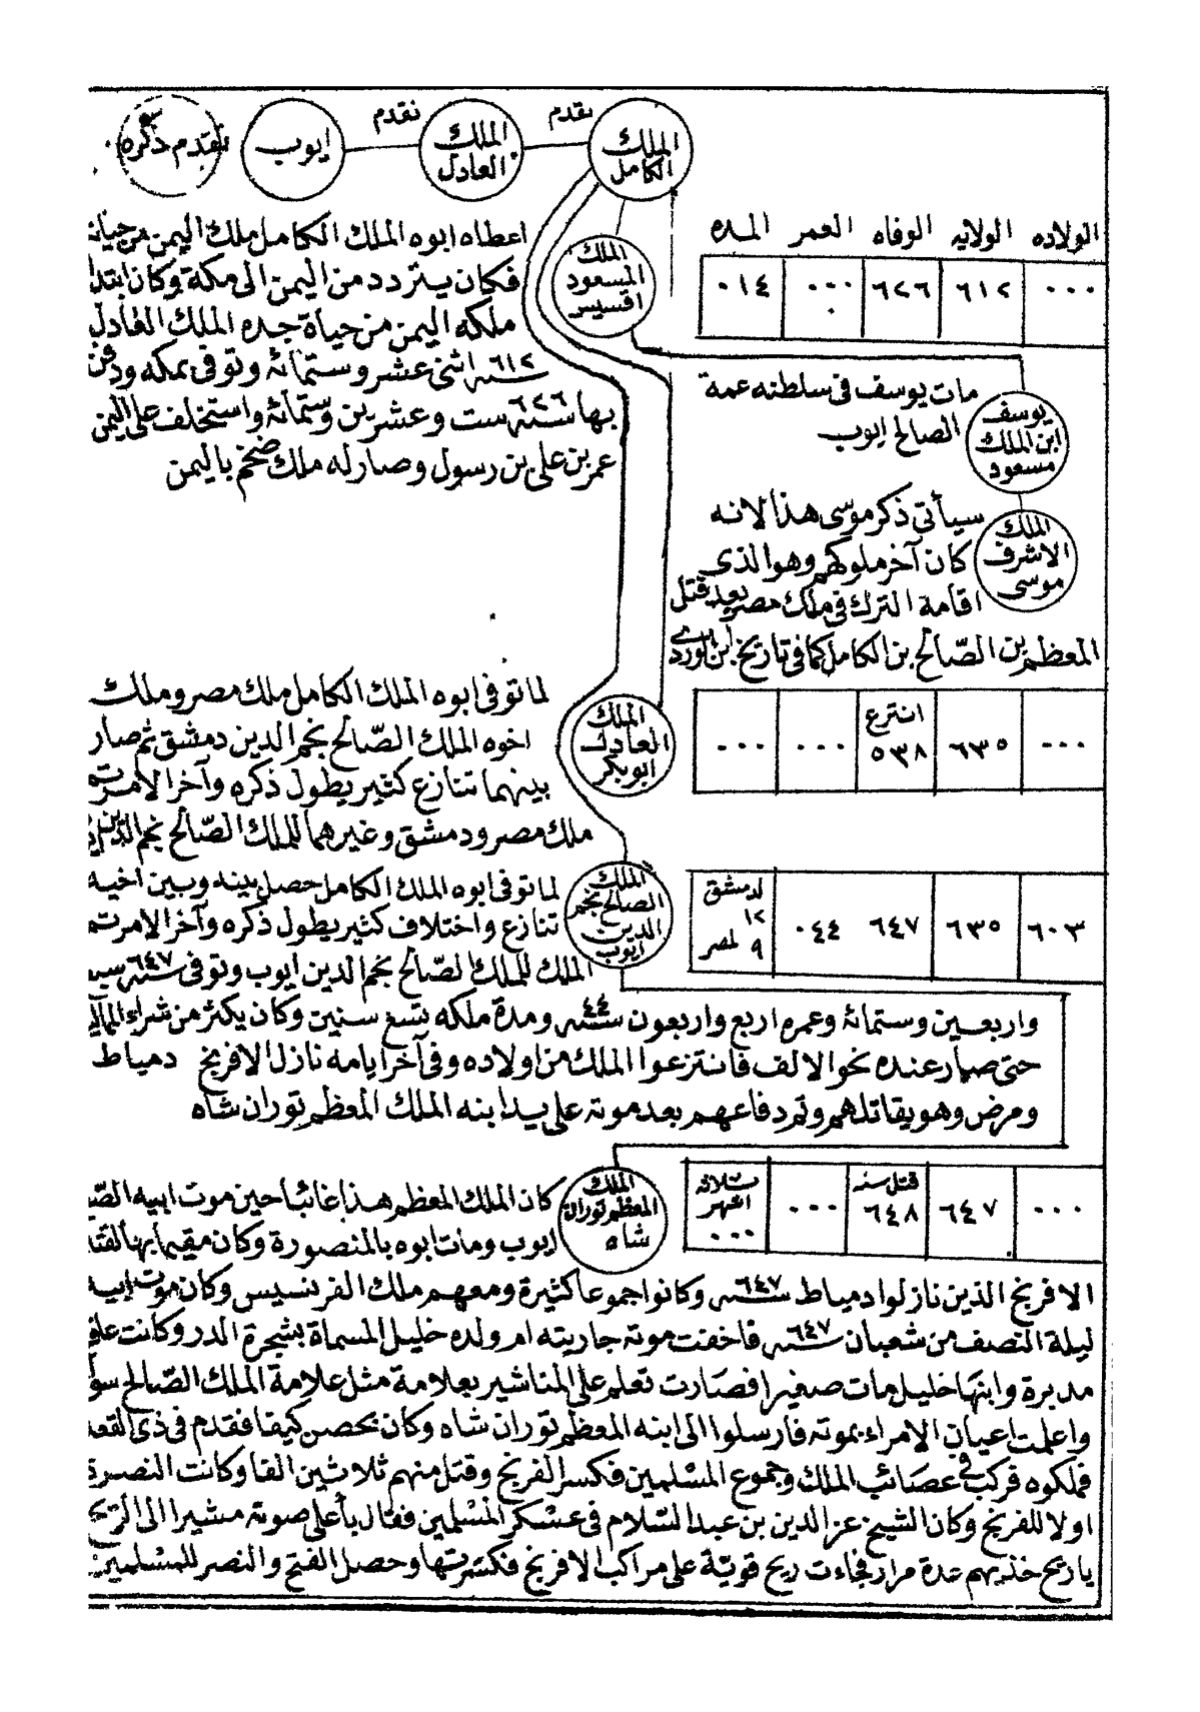 الملك الكامل
تقدم
الملك العادل
تقدم
ايوب
تقدم ذكره
الولاده الولايه الوفاه العمر المده
٠٠٠ ٦١٢ ٦٢٦ ٠٠٠ ٠١٤
الملك المسعود اقسيس
اعطاه ابوه الملك الكامل ملك اليمن من حياته
فكان يتردد من اليمن الى مكة وكان ابتدا
ملكه اليمن من حياة جده الملك العادل
سنه ٦١٢ اثنى عشر وستمائة وتوفى بمكه ودفن
بها سنه ٦٢٦ ست وعشرين وستمائة واستخلف على اليمن
عمر بن على بن رسول وصار له ملك ضخم باليمن
يوسف ابن الملك مسعود
مات يوسف فى سلطنه عمة
الصالح ايوب
الملك الاشرف موسى
سيأتى ذكر موسى هذا لانه
كان آخر ملوكهم وهو الذى
اقامة الترك فى ملك مصر بعد قتل
المعظم بن الصّالح بن الكامل كما فى تاريخ ابن الوردى
٠٠٠ ٦٣٥ انترع ٥٣٨ ٠٠٠ ٠٠٠
الملك العادل ابوبكر
لما توفى ابوه الملك الكامل ملك مصر وملك
اخوه الملك الصّالح نجم الدين دمشق ثم صار
بينهما تنازع كثير يطول ذكره وآخر الامر تم
ملك مصر ودمشق وغيرهما للملك الصّالح نجم الدين
٦٠٣ ٦٣٥ ٦٤٧ ٠٤٤ لدمشق ١٢ ٩ لمصر
الملك الصالح نجم الدين ايوب
لما توفى ابوه الملك الكامل حصل بينه وبين اخيه
تنازع واختلاف كثير يطول ذكره وآخر الامر تم
الملك للملك الصّالح نجم الدين ايوب وتوفى سنه ٦٤٧
واربعين وستمائة وعمره اربع واربعون سنه ٤٤ ومدة ملكه تسع سنين وكان يكثر من شراء
حتى صار عنده نحو الالف فانتزعوا الملك من اولاده وفى آخر ايامه نازل الافرنج دمياط
ومرض وهو يقاتلهم وتم دفاعهم بعد موته على يد ابنه الملك المعظم توران شاه
٠٠٠ ٦٤٧ قتل سنه ٦٤٨ ٠٠٠ ثلاثه اشهر ٠٠٠
الملك المعظم توران شاه
كان الملك المعظم هذا غائبا حين موت ابيه
ايوب ومات ابوه بالمنصورة وكان مقيما بها
الافرنج الذين نازلوا دمياط سنه ٦٤٧ وكانوا جموعا كثيرة ومعهم ملك الفرنسيس وكان موت ابيه
ليلة النصف من شعبان سنه ٦٤٧ فاخفت موته جاريته ام ولده خليل المسماة بشجرة الدر وكانت
مديرة وابنها خليل مات صغيرا فصارت تعلم على المناشير بعلامة مثل علامة الملك الصّالح
واعلمت اعيان الامراء بموته فارسلوا الى ابنه المعظم توران شاه وكان بحصن كيفا فقدم فى ذى
فملكوه فركب فى عصائب الملك وجموع المسلمين فكسر الفرنج وقتل منهم ثلاثين الفا وكانت النصرة
اولا للفرنج وكان الشيخ عز الدين بن عبد السّلام فى عسكر المسلمين فقال بأعلى صوته مشيرا الى الريح
يا ريح خذيهم عدة مرار فجاءت ريح قويّة على مراكب الافرنج فكسرتها وحصل الفتح والنصر للمسلمين